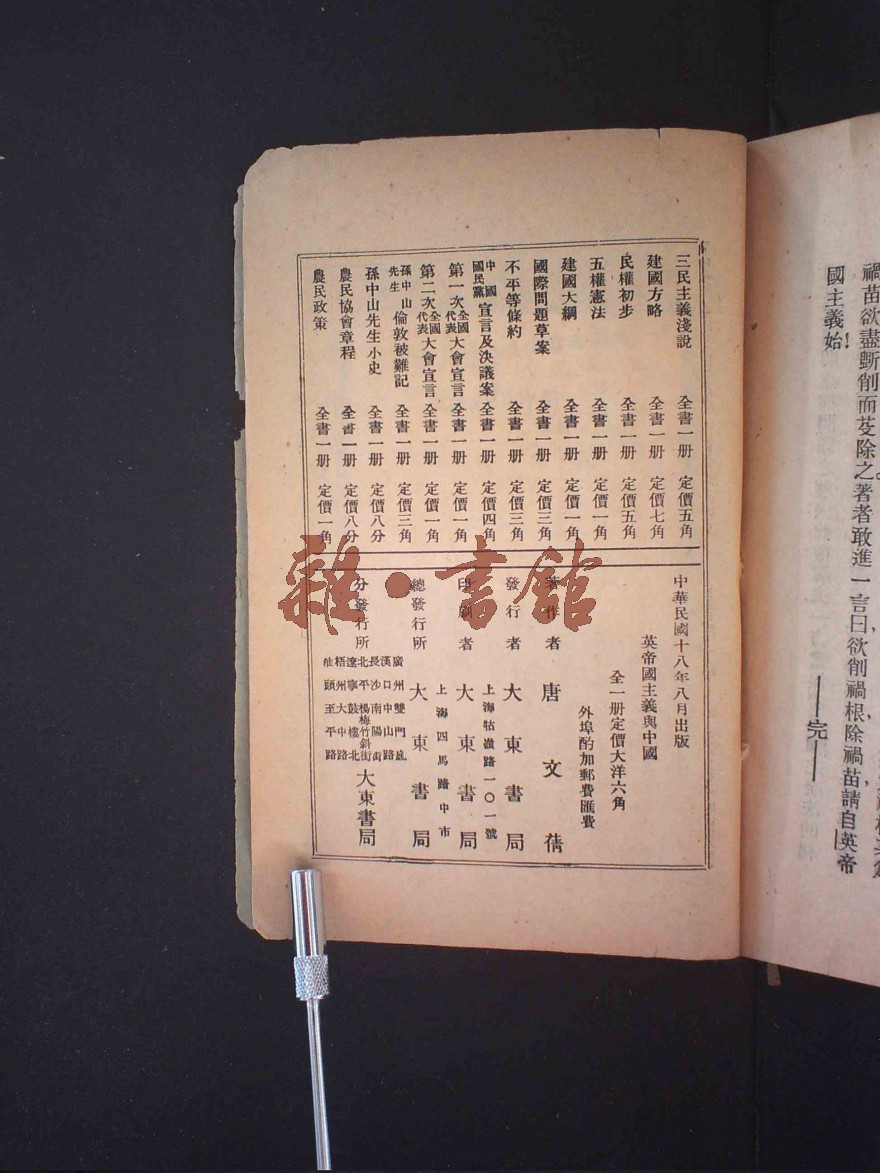 禍苗欲盡斲削而芟除之著者敢進一言曰欲削禍根除禍苗請自英帝
國主義始！
——完——
三民主義淺說　全書一册　定價五角
建國方略　全書一册　定價七角
民權初步　全書一册　定價五角
五權憲法　全書一册　定價一角
建國大綱　全書一册　定價一角
國際問題草案　全書一册　定價三角
不平等條約　全書一册　定價三角
中國國民黨宣言及決議案　全書一册　定價四角
第一次全國代表大會宣言　全書一册　定價一角
第二次全國代表大會宣言　全書一册　定價一角
孫中山先生倫敦被難記　全書一册　定價三角
孫中山先生小史　全書一册　定價八分
農民協會章程　全書一册　定價八分
農民政策　全書一册　定價一角
中華民國十八年八月出版
英帝國主義與中國
全一册定價大洋六角
外埠酌加郵費匯費
著作者　唐文蒨
發行者　大東書局
上海牯嶺路一〇一號
印刷者　大東書局
上海四馬路中市
總發行所　大東書局
分發行所
廣州雙門底
漢口中山路
長沙南陽街
北平楊梅竹斜街
遼寧鼓樓北
梧州大中路
汕頭至平路
大東書局
雜·書館